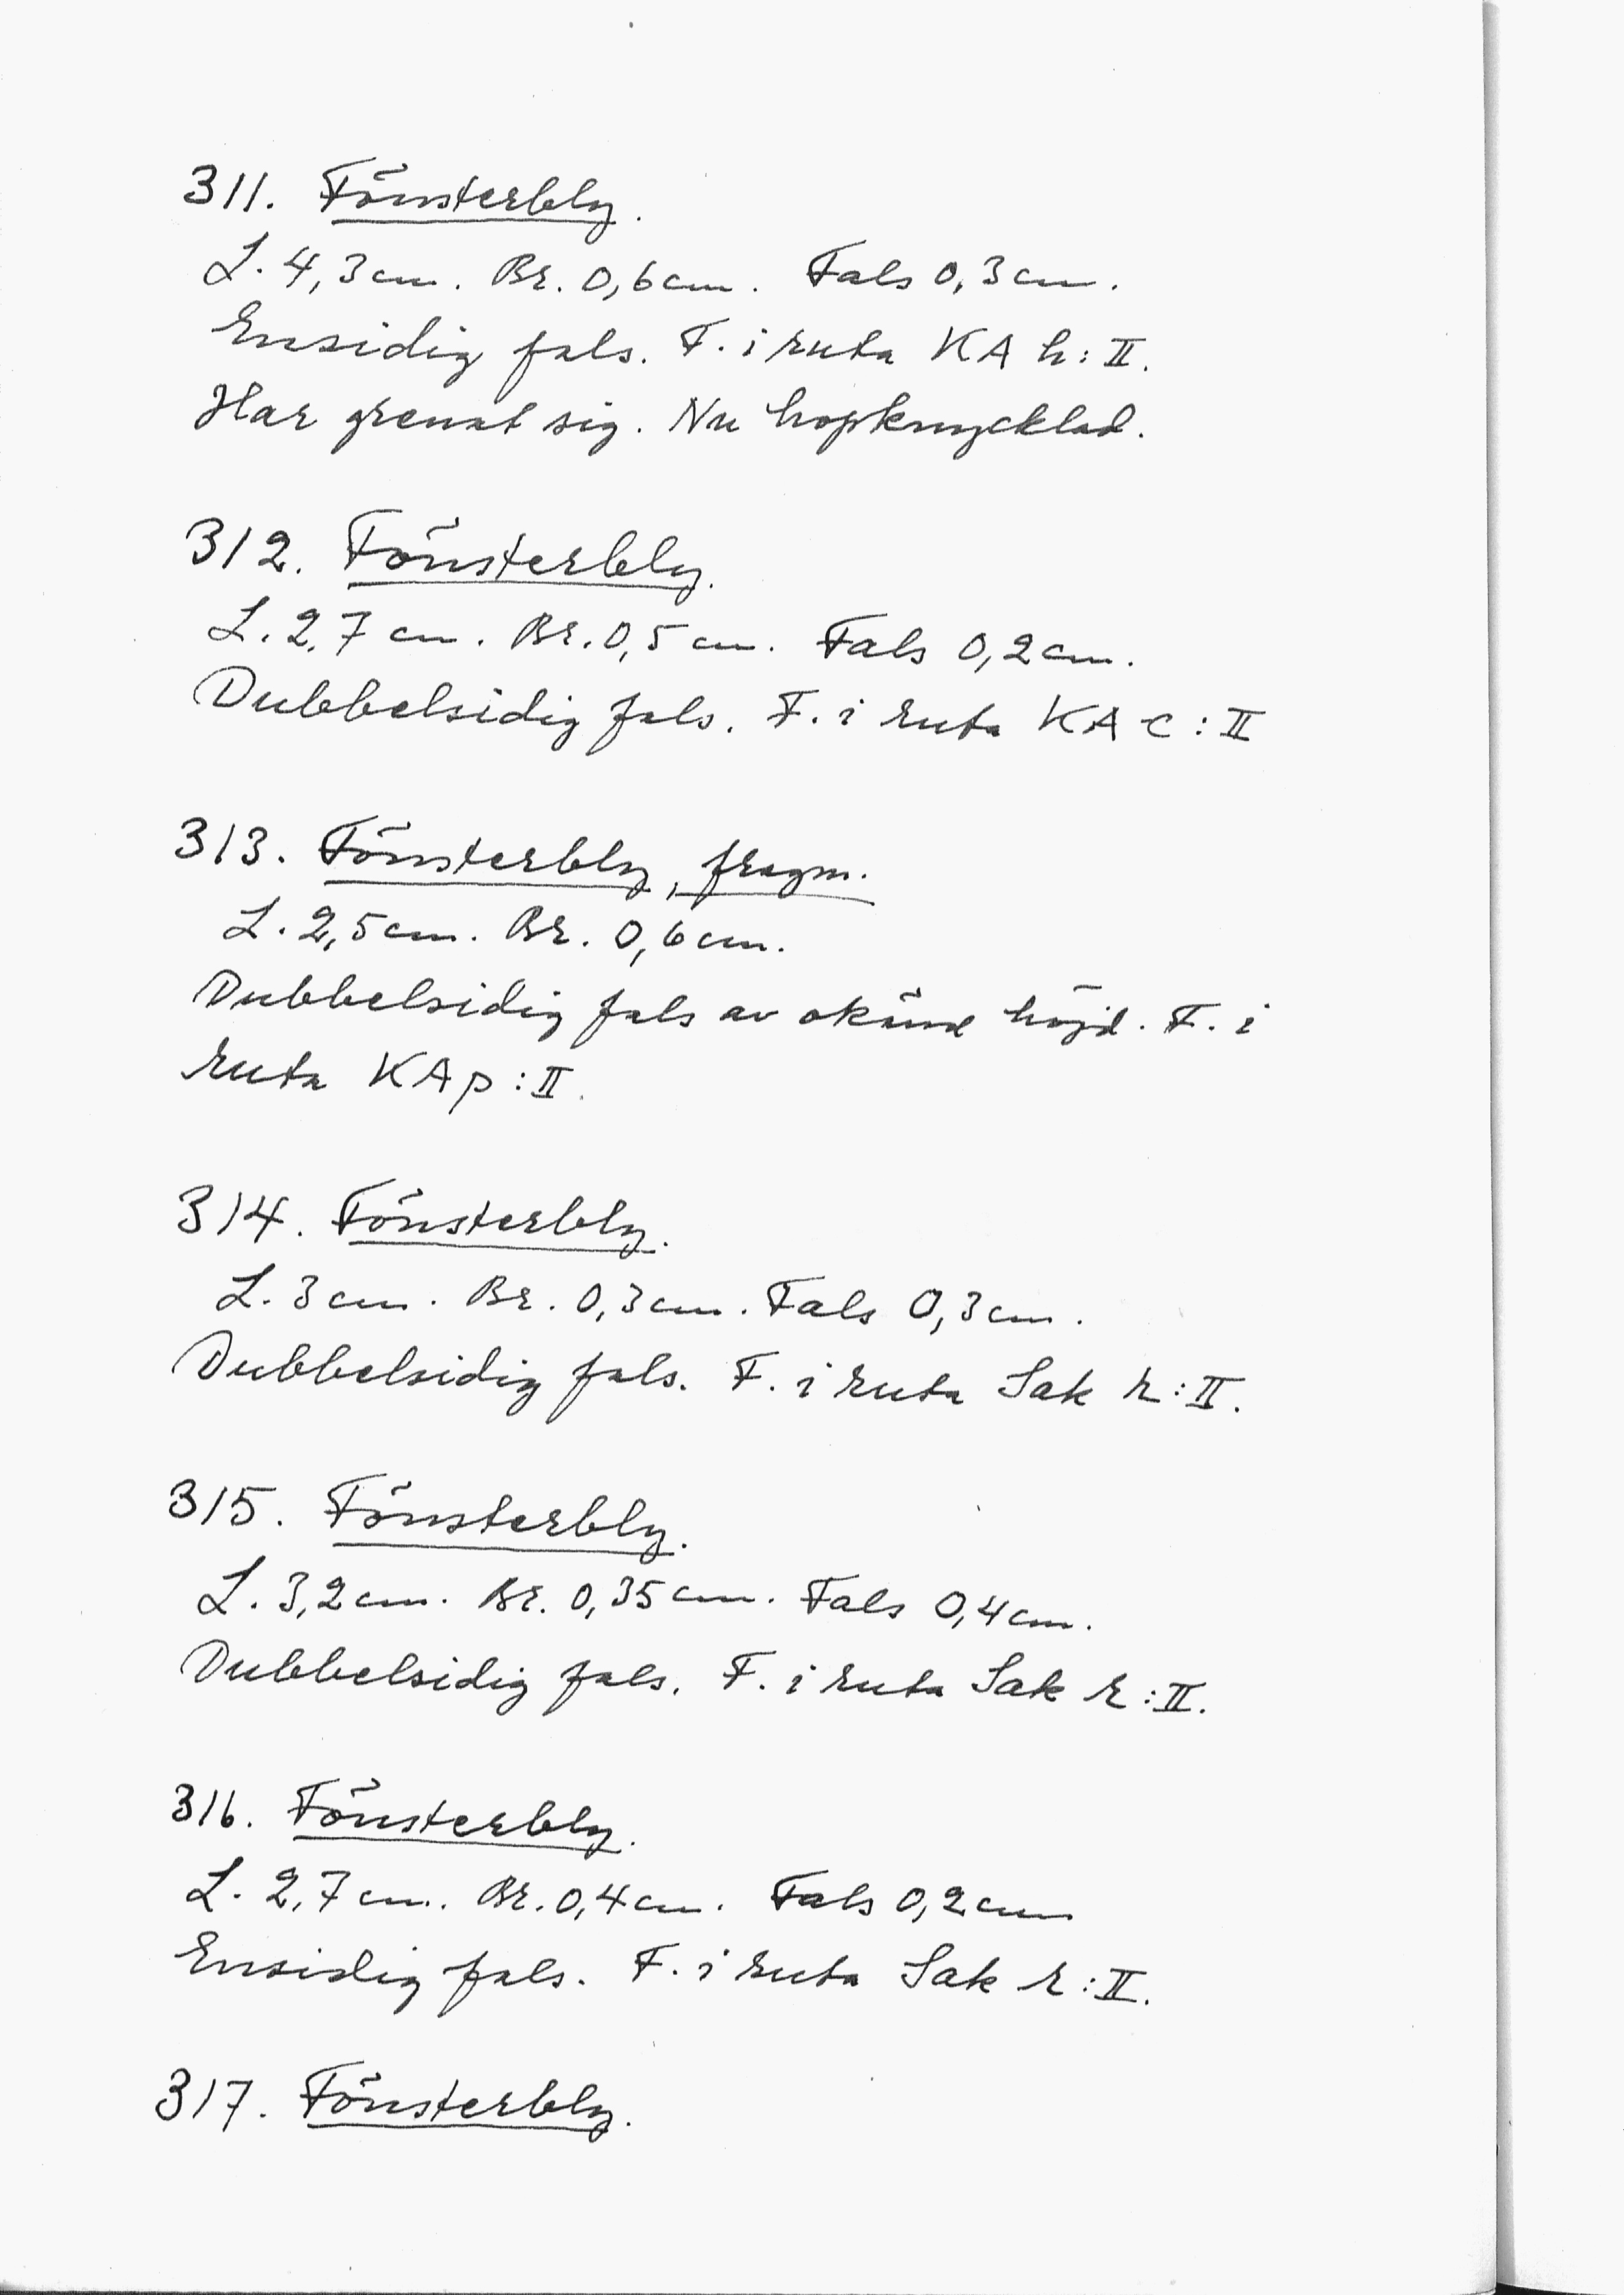 311. Fönsterbly.
L. 4,3 cm. Br. 0,6 cm. Fals 0,3 cm.
Ensidig fals. F. i ruta KA h:II.
Har grenat sig. Nu hopknycklad.
312. Fönsterbly.
L. 2,7 cm. Br. 0,5 cm. Fals 0,2 cm.
Dubbelsidig fals. F. i ruta KA c:II
313. Fönsterbly, fragm.
L. 2,5 cm. Br. 0,6 cm.
Dubbelsidig fals av okänd höjd. F. i
ruta KA p:II.
314. Fönsterbly.
L. 3 cm. Br. 0,3 cm. Fals 0,3 cm.
Dubbelsidig fals. F. i ruta Sak r:II.
315. Fönsterbly.
L. 3,2 cm. Br. 0,35 cm. Fals 0,4 cm.
Dubbelsidig fals. F. i ruta Sak r:II.
316. Fönsterbly.
L. 2,7 cm. Br. 0,4 cm. Fals 0,2 cm
Ensidig fals. F. i ruta Sak r:II.
317. Fönsterbly.